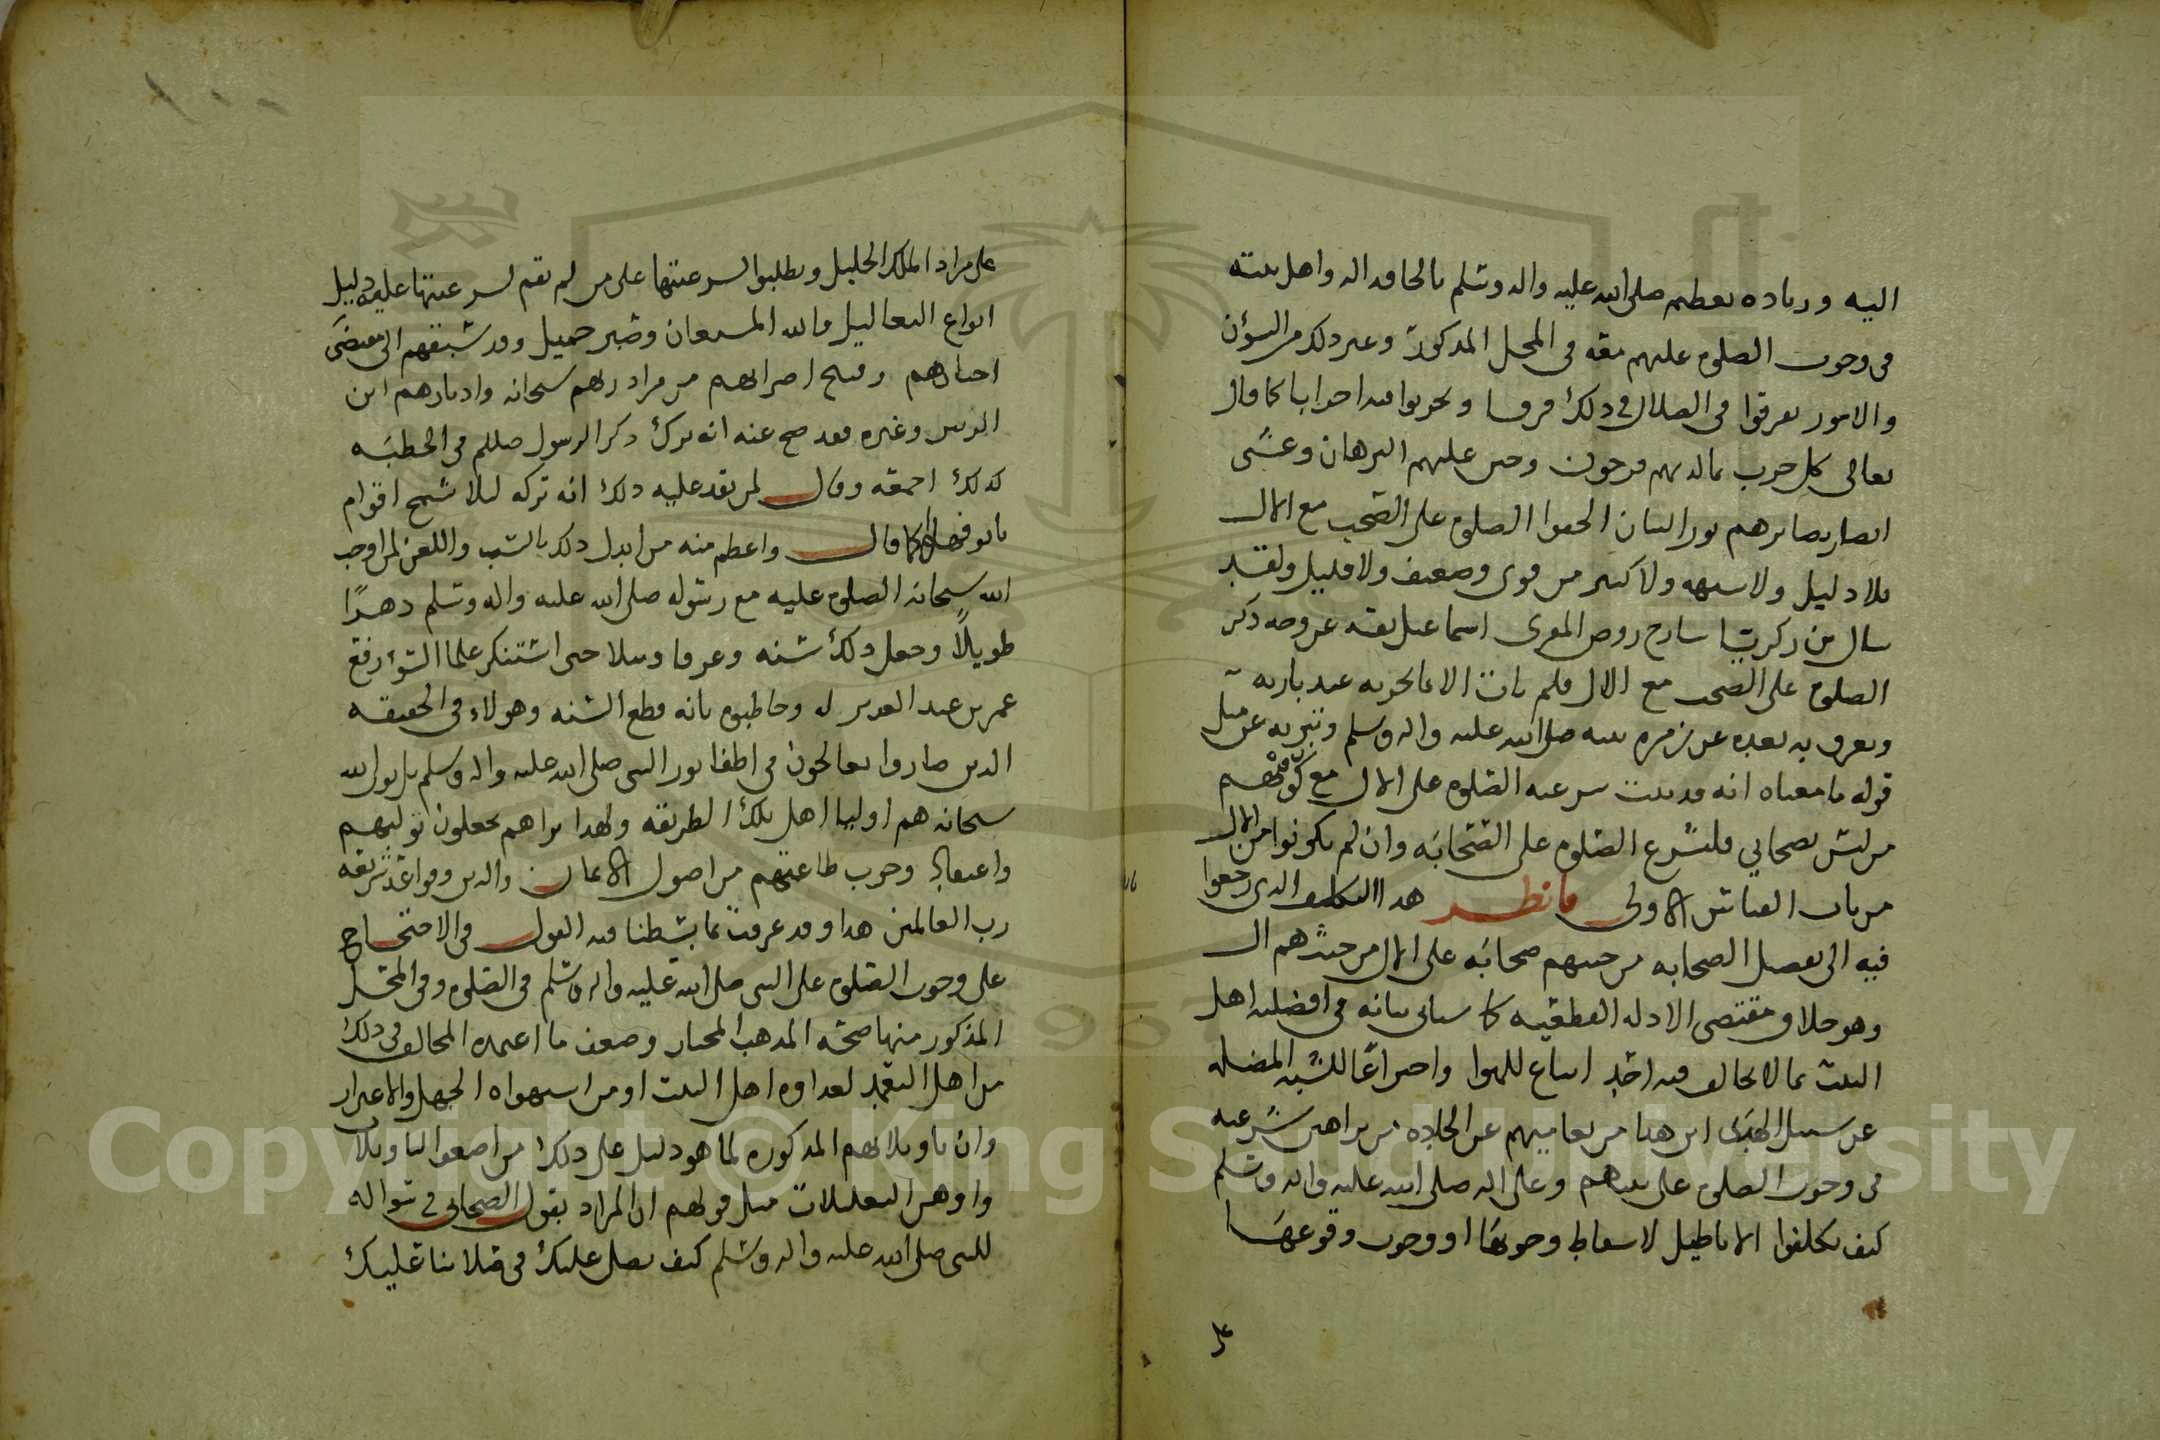 اليه وزياده تعظيم صلى الله عليه واله وسلم بالحاقه اله واهل بيته
في وجوب الصلوه عليهم معه في المحل المذكور وغير ذلك من السؤن
والامور تفرقوا في الضلال في ذلك فرقا وتحزبوا فيه احزابا كما قال
تعالى كل حزب بما لديهم فرحون وحين عليهم البرهان وعشى
ابصار بصايرهم نور البيان الحقوا الصلوه على الصحب مع الال
بلا دليل ولا شبهه ولا كثير من قوى وضعيف ولا قليل ولقد
سال من زكريا شارح روض المقرى اسماعيل نفسه عن وجه ذكر
الصلوه على الصحب مع الال فلم يات الا بما يخزيه عند باريه
ويعرف به بعده عن زمره نبيه صلى الله عليه واله وسلم وتبريه عن مثل
قوله ما معناه انه قد ثبت شرعيه الصلوه على الال مع كون فيهم
من ليس بصحابي فلتشرع الصلوه على الصحابه وان لم يكونوا من الال
من باب القياس الاولى فانظر هذا التكلف الذي رجعوا
فيه الى تفضيل الصحابه من حيثهم صحابه على الال من حيث هم ال
وهو خلاف مقتضى الادله القطعيه كما سياتى بيانه في افضليه اهل
البيت بما لا يخالف فيه احد اتباع للهوا واختراعا للشبه المضله
عن سبيل الهدى اين هذا من تعاميهم عن الجاده من براهين شرعيه
في وجوب الصلوه على نبيهم وعلى اله صلى الله عليه واله وسلم
كيف تكلفوا الاباطيل لاسقاط وجوبها او وجوب وقوعها
على
على مراد الملك الجليل وتطلبوا لشرعيتها على من لم تقم لشرعيتها عليه دليل
انواع التعاليل فالله المستعان وصبر جميل وقد سبقهم الى مقتضى
اختيارهم وقبيح اضرابهم من مراد ربهم سبحانه وادبارهم ابن
الزبير وغيره فقد صح عنه انه ترك ذكر الرسول صللم في الخطبه
كذلك اجمعه وقال لمن نقد عليه ذلك انه تركه ليلا تشمخ اقوام
بانوفها او كما قال واعظم منه من ابدل ذلك بالسب واللعن لمن اوجب
الله سبحانه الصلوه عليه مع رسوله صلى الله عليه واله وسلم دهرًا
طويلًا وجعل ذلك سنه وعرفا ومثلا حتى استنكر علما السوء رفع
عمر بن عبد العزيز له وخاطبوه بانه قطع السنه وهولاء في الحقيقه
الذين صاروا يعالجون في اطفا نور النبى صلى الله عليه واله وسلم بل نور الله
سبحانه هم اوليا اهل تلك الطريقه ولهذا تراهم يجعلون توليهم
واعتقاد وجوب طاعتهم من اصول الايمان والدين وقواعد شريعه
رب العالمين هذا وقد عرفت بما بسطنا فيه القول في الاحتجاج
على وجوب الصلوه على النبى صلى الله عليه واله وسلم في الصلوه وفي المحل
المذكور منها صحه المذهب المختار وضعف ما اعتمده المخالف في ذلك
من اهل التعمد لعداوه اهل البيت او من استهواه الجهل والاغترار
وان تاويلاتهم المذكوره لما هو دليل على ذلك من اضعف التاويلات
واوهن التعليلات مثل قولهم ان المراد بقول الصحابى في سواله
للنبى صلى الله عليه واله وسلم كيف نصلى عليك في صلاتنا عليك